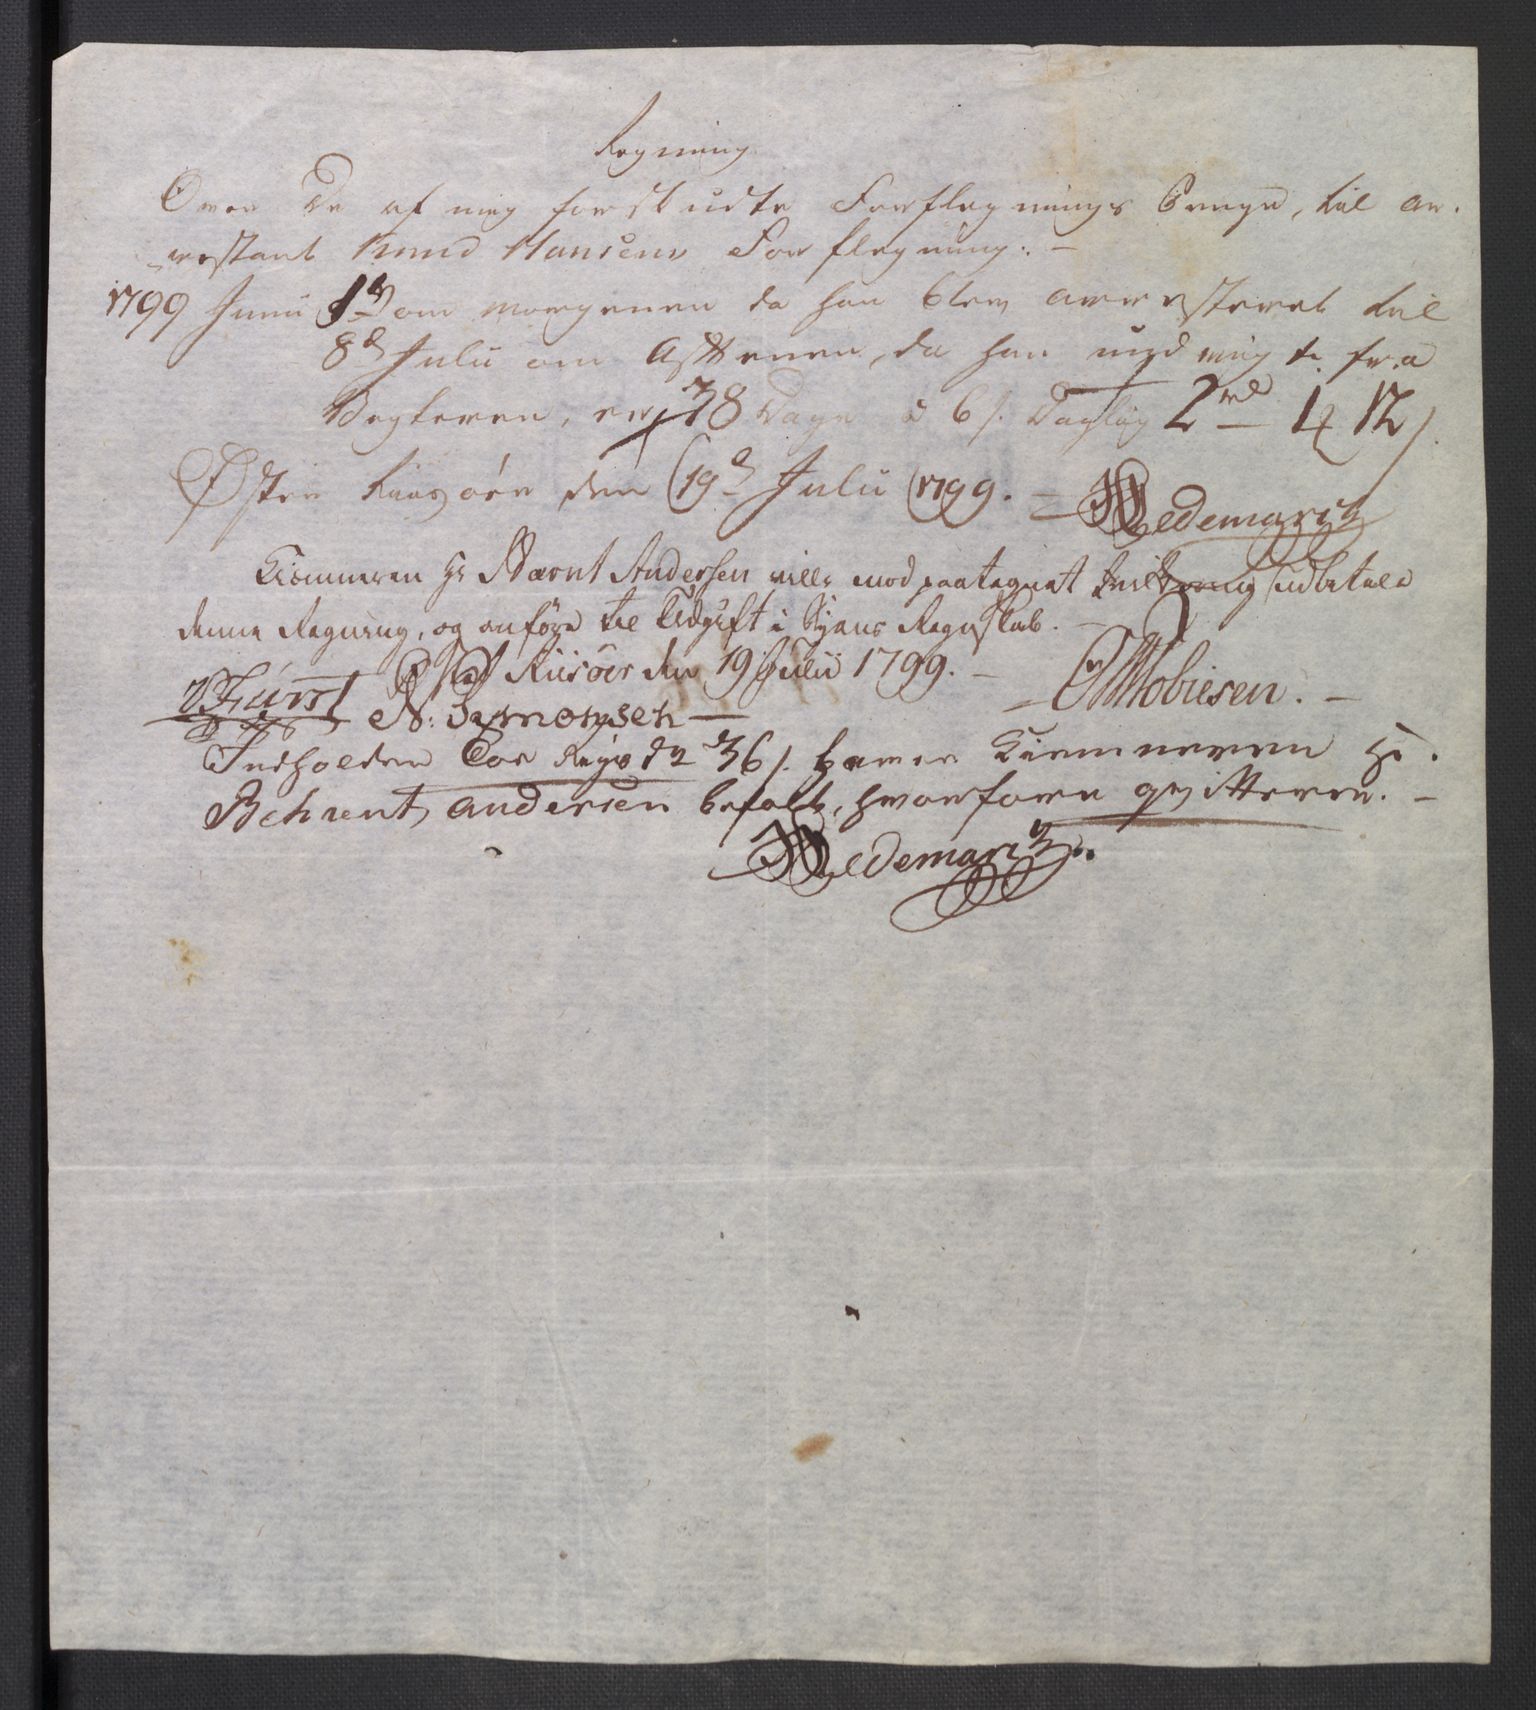 Regning
Over de af mig forskudte Forflegnings Penge, til ar-
restant Knud Hansens Forflegning. —
1799 Junii 1d om morgenen da han blev arresteret til
8d Julii om Afttenen, da han undvigte fra
Vegteren, er 38 Dage à 6 s. Daglig 2 rd — 1 12 s.
Øster Riisøer den 19d Julii 1799. —
HWedemaritz
Kiemneren Hr Bærnt Andersen ville mod paategnet udbetale
denne Regning, og anføre til Udgift i Byens Regnskab. —
Øst Riisöer den 19 Julii 1799. —
V. Fürst N: Symonsen — Mobiesen. —
Indholden 2 36 s. haver Kiemneren Hr.
Behrent Andersen betalt, hvorfore qvitteres. —
HWedemaritz.